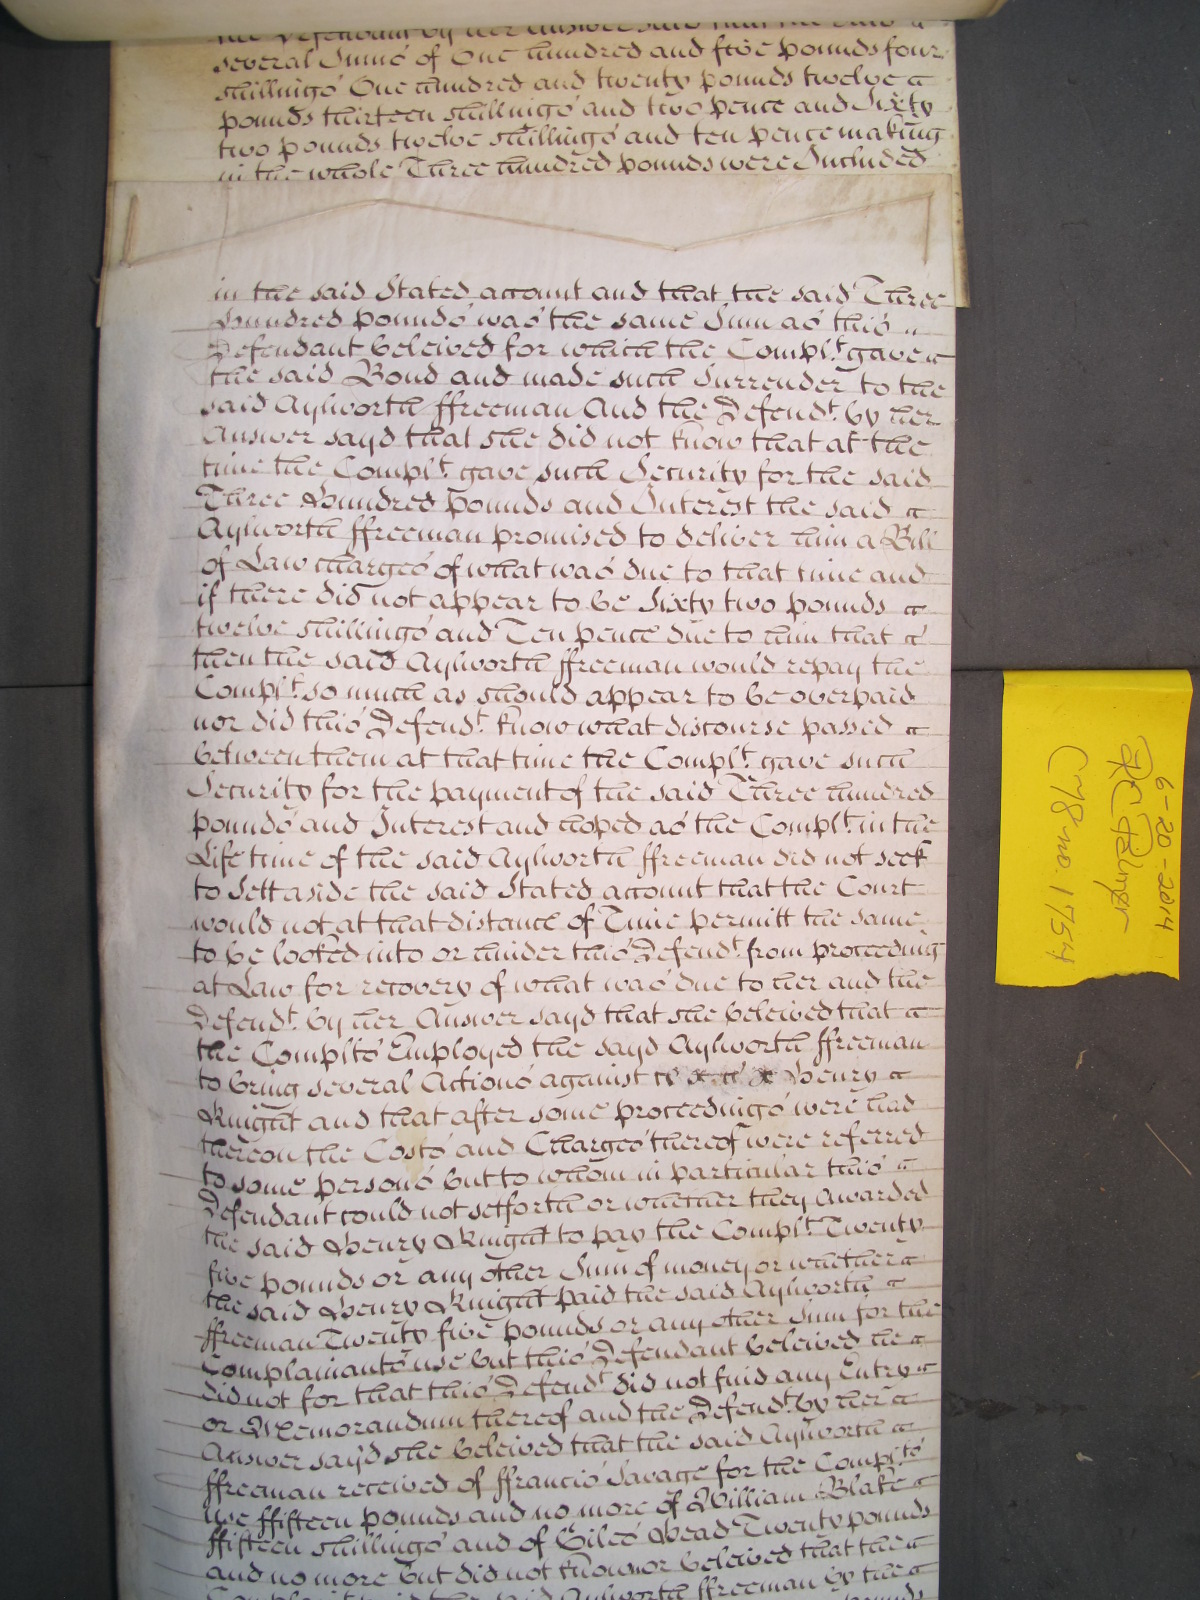 the Defendant by her answer said that the said
several Sums of One hundred and five pounds four
shillings One hundred and twenty pounds twelve
pounds thirteen shillings and two pence and Sixty
two pounds twelve shillings and ten pence making
in the whole Three hundred pounds were Included
in the said Stated account and that the said Three
Hundred pounds was the same Sum as this
Defendant beleived for which the Complt. gave
the said Bond and made such Surrender to the
said Aylworth ffreeman And the Defendt. by her
Answer sayd that she did not know that at the
time the Complt. gave such Security for the said
Three Hundred pounds and Interest the said
Aylworth ffreeman promised to deliver him a Bill
of Law charges of what was due to that time and
if there did not appear to be Sixty two pounds
twelve shillings and Ten pence due to him that
then the said Aylworth ffreeman would repay the
Complt. so much as should appear to be overpaid
nor did this Defendt. know what discourse passed
between them at that time the Complt. gave such
Security for the payment of the said Three hundred
pounds and Interest and hoped as the Complt. in the
Life time of the said Aylworth ffreeman did not seek
to Sett aside the said Stated account that the Court
would not at that distance of Time permitt the same
to be looked into or hinder this Defendt. from proceeding
at Law for recovery of what was due to her and the
Defendt. by her Answer sayd that she beleived that
the Complts Employed the sayd Aylworth ffreeman
to bring several Actions against Henry
Knight and that after some proceedings were had
thereon the Costs and Charges thereof were referred
to some persons but to whom in particular this
Defendant could not setforth or whether they Awarded
the said Henry Knight to pay the Complt. Twenty
five pounds or any other Sum of money or whether
the said Henry Knight paid the said Aylworth
ffreeman Twenty five pounds or any other Sum for the
Complainants use but this Defendant beleived he
did not for that this Defendt did not find any Entry
or Memorandum thereof and the Defendt. by her
Answer sayd she beleived that the said Aylworth
ffreeman received of ffrancis Savage for the Complts
use ffifteen pounds and no more of William Blake
ffifteen shillings and of Giles Head Twenty pounds
and no more but did not know or beleived that the
Complt. paid the said Aylworth ffreeman by the
6-20-2014
C78 no. 1754